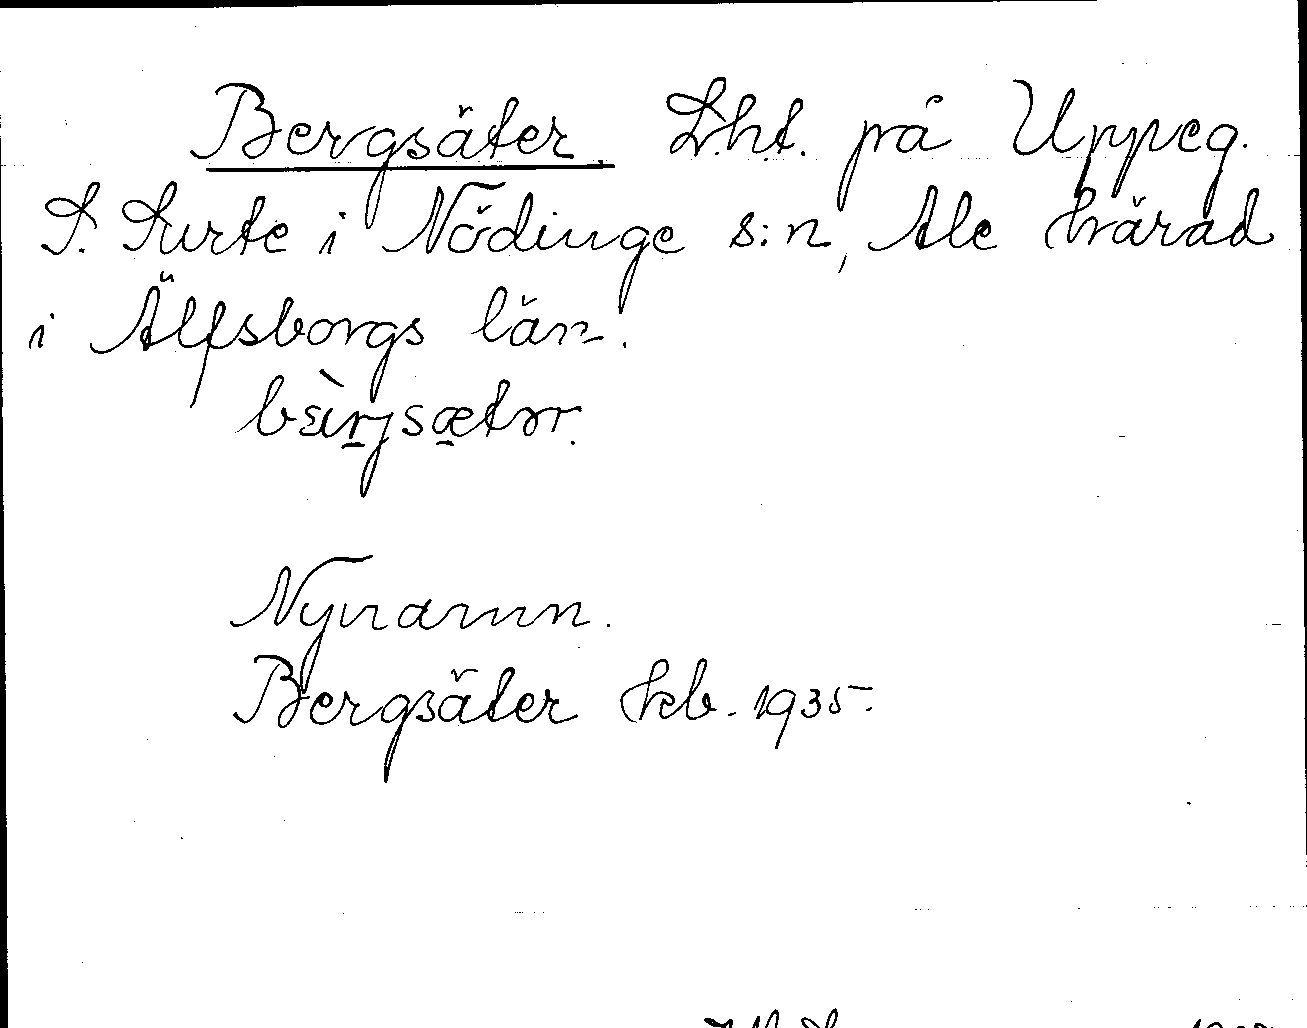 Bergsäter. Lht. på Uppeg.
S. Surte i Nödinge s:n, Ale härad
i Älfsborgs län.
Nynamn.
Bergsäter kb. 1935.